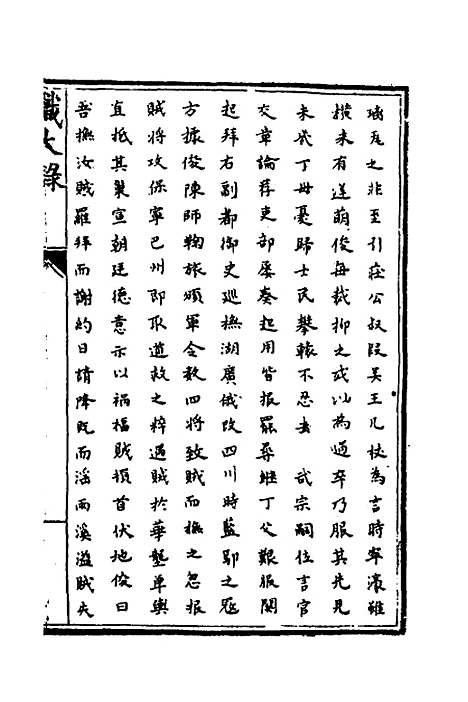 璃瓦之非至引莊公叔段吳王几杖為言時寧濠雖
橫未有逆萌俊每裁抑之或以為過卒乃服其先見
未幾丁母憂歸士民攀轅不忍去　武宗嗣位言官
交章論荐吏部屡奏起用皆报罷尋繼丁父艱服闋
起拜右副都御史巡撫湖廣俄改四川時藍鄢之冦
方據俊陳師鞠旅頒軍令数四将致賊而撫之忽报
賊将攻保寧巳州即取道救之猝遇賊於華壟单輿
直抵其巢宣朝廷德意示以禍福賊頫首伏地俊曰
吾撫汝賊羅拜而謝約日請降既而滛雨溪溢賊夫
獻大錄